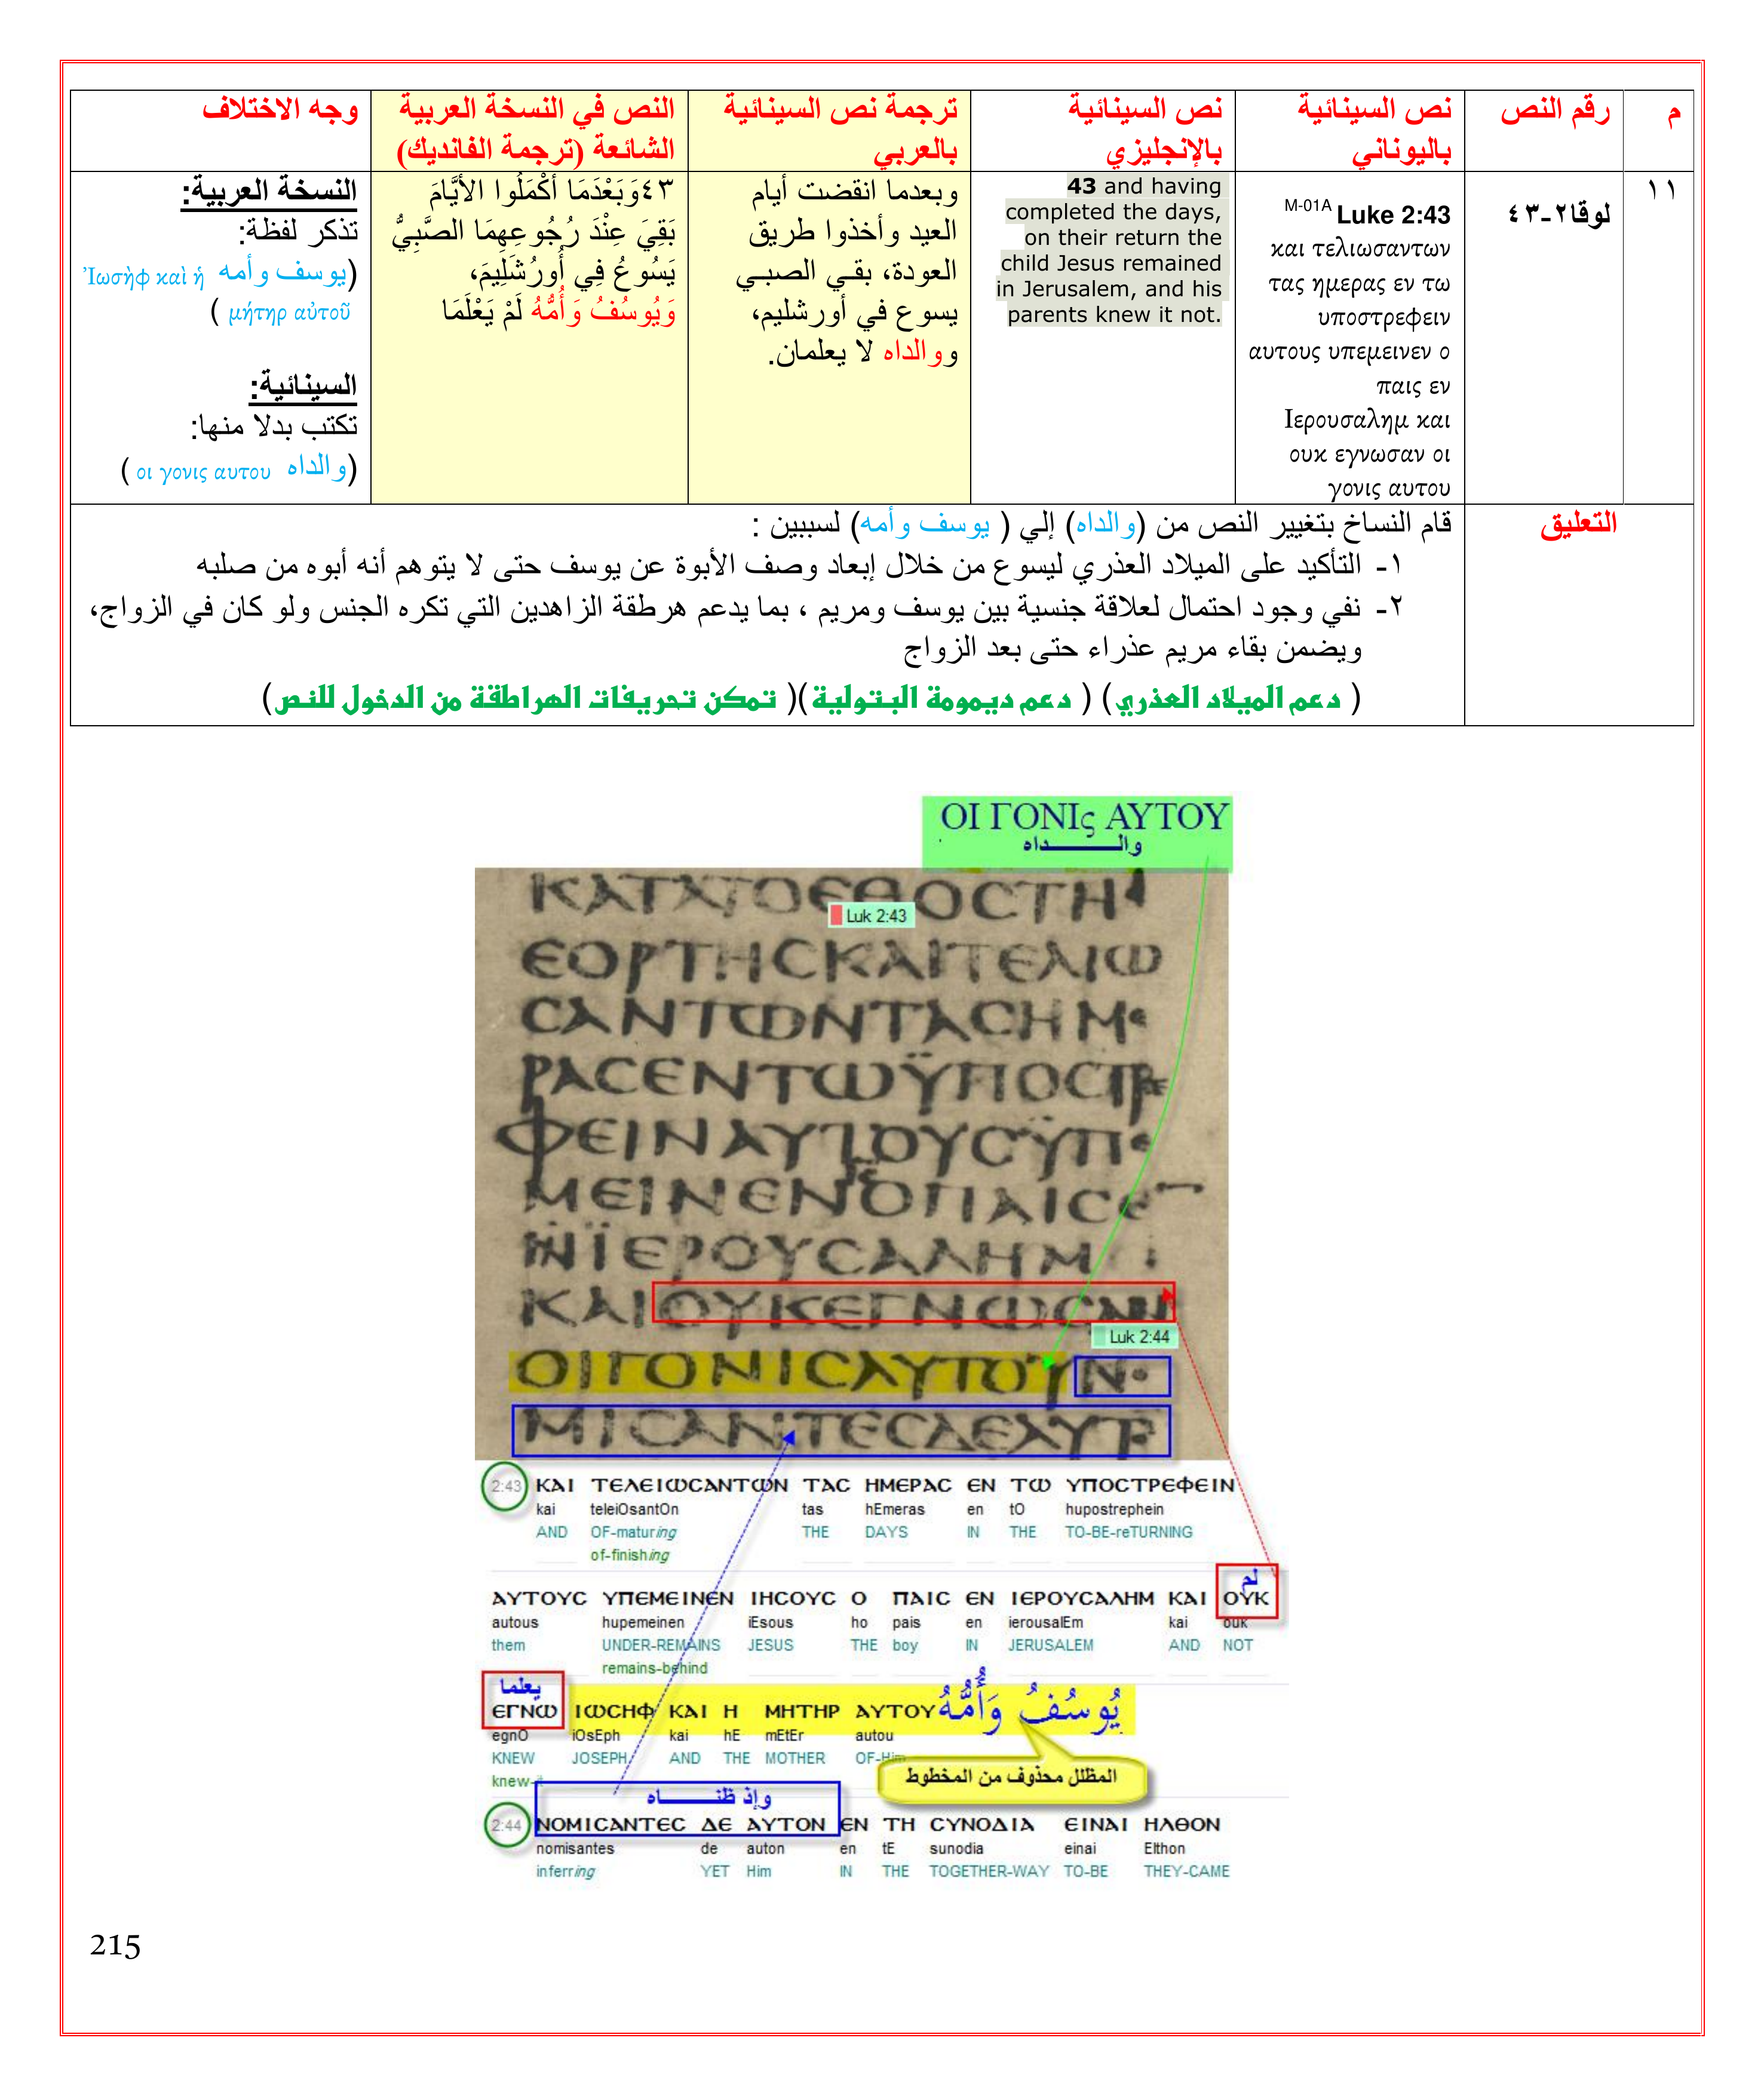 م
رقم النص
نص السينائية
باليوناني
نص السينائية
بالإنجليزي
ترجمة نص السينائية
بالعربي
النص في النسخة العربية
الشائعة (ترجمة الفانديك)
وجه الاختلاف
١١
لوقا٢-٤٣
M-01A Luke 2:43
και τελιωσαντων
τας ημερας εν τω
υποστρεφειν
αυτους υπεμεινεν ο
παις εν
Ιερουσαλημ και
ουκ εγνωσαν οι
γονις αυτου
43 and having
completed the days,
on their return the
child Jesus remained
in Jerusalem, and his
parents knew it not.
وبعدما انقضت أيام
العيد وأخذوا طريق
العودة، بقي الصبي
يسوع في أورشليم،
ووالداه لا يعلمان.
٤٣وَبَعْدَمَا أَكْمَلُوا الأَيَّامَ
بَقِيَ عِنْدَ رُجُوعِهِمَا الصَّبِيُّ
يَسُوعُ فِي أُورُشَلِيمَ،
وَيُوسُفُ وَأُمُّهُ لَمْ يَعْلَمَا
النسخة العربية:
تذكر لفظة:
(يوسف وأمه Ἰωσὴφ καὶ ἡ
μήτηρ αὐτοῦ )
السينائية:
تكتب بدلا منها:
(والداه οι γονις αυτου )
التعليق
قام النساخ بتغيير النص من (والداه) إلي ( يوسف وأمه) لسببين :
١- التأكيد على الميلاد العذري ليسوع من خلال إبعاد وصف الأبوة عن يوسف حتى لا يتوهم أنه أبوه من صلبه
٢- نفي وجود احتمال لعلاقة جنسية بين يوسف ومريم ، بما يدعم هرطقة الزاهدين التي تكره الجنس ولو كان في الزواج،
ويضمن بقاء مريم عذراء حتى بعد الزواج
( دعم الميلاد العذري) ( دعم ديمومة البتولية)( تمكن تحريفات الهراطقة من الدخول للنص)
ΟΙ ΓΟΝΙς ΑΥΤΟΥ
والـــــــداه
ΚΑΤΑΤΟΕΘΟCΤΗ
Luk 2:43
ΕΟΡΤΗCΚΑΙΤΕΛΙΩ
CΑΝΤΩΝΤΑCΗΜΕ
ΡΑCΕΝΤΩΫΠΟCΤΡΕ
ΦΕΙΝΑΥΤΟΥCΫΠΕ
ΜΕΙΝΕΝΟΠΑΙCΕ
ΝΪΕΡΟΥCΑΛΗΜ
ΚΑΙΟΥΚΕΓΝΩCΑΝ
Luk 2:44
ΟΙΓΟΝΙCΑΥΤΟΥΝΟ
ΜΙCΑΝΤΕCΔΕΑΥΤΟ
2:43 ΚΑΙ ΤΕΛΕΙΩCΑΝΤΩΝ ΤΑC ΗΜΕΡΑC ΕΝ ΤΩ ΥΠΟCΤΡΕΦΕΙΝ
kai teleiOsantOn tas hEmeras en tO hupostrephein
AND OF-maturing THE DAYS IN THE TO-BE-reTURNING
of-finishing
لم
ΑΥΤΟΥC ΥΠΕΜΕΙΝΕΝ ΙΗCΟΥC Ο ΠΑΙC ΕΝ ΙΕΡΟΥCΑΛΗΜ ΚΑΙ ΟΥΚ
autous hupemeinen iEsous ho pais en ierousalEm kai ouk
them UNDER-REMAINS JESUS THE boy IN JERUSALEM AND NOT
remains-behind
يعلما
ΕΓΝΩ ΙΩCΗΦ ΚΑΙ Η ΜΗΤΗΡ ΑΥΤΟΥ يُوسُفُ وَأُمُّهُ
egnO iOsEph kai hE mEtEr autou
KNEW JOSEPH AND THE MOTHER OF-Him
knew-it
المظلل محذوف من المخطوط
وإذ ظنـــــــاه
2:44 ΝΟΜΙCΑΝΤΕC ΔΕ ΑΥΤΟΝ ΕΝ ΤΗ CΥΝΟΔΙΑ ΕΙΝΑΙ ΗΛΘΟΝ
nomisantes de auton en tE sunodia einai Elthon
inferring YET Him IN THE TOGETHER-WAY TO-BE THEY-CAME
215